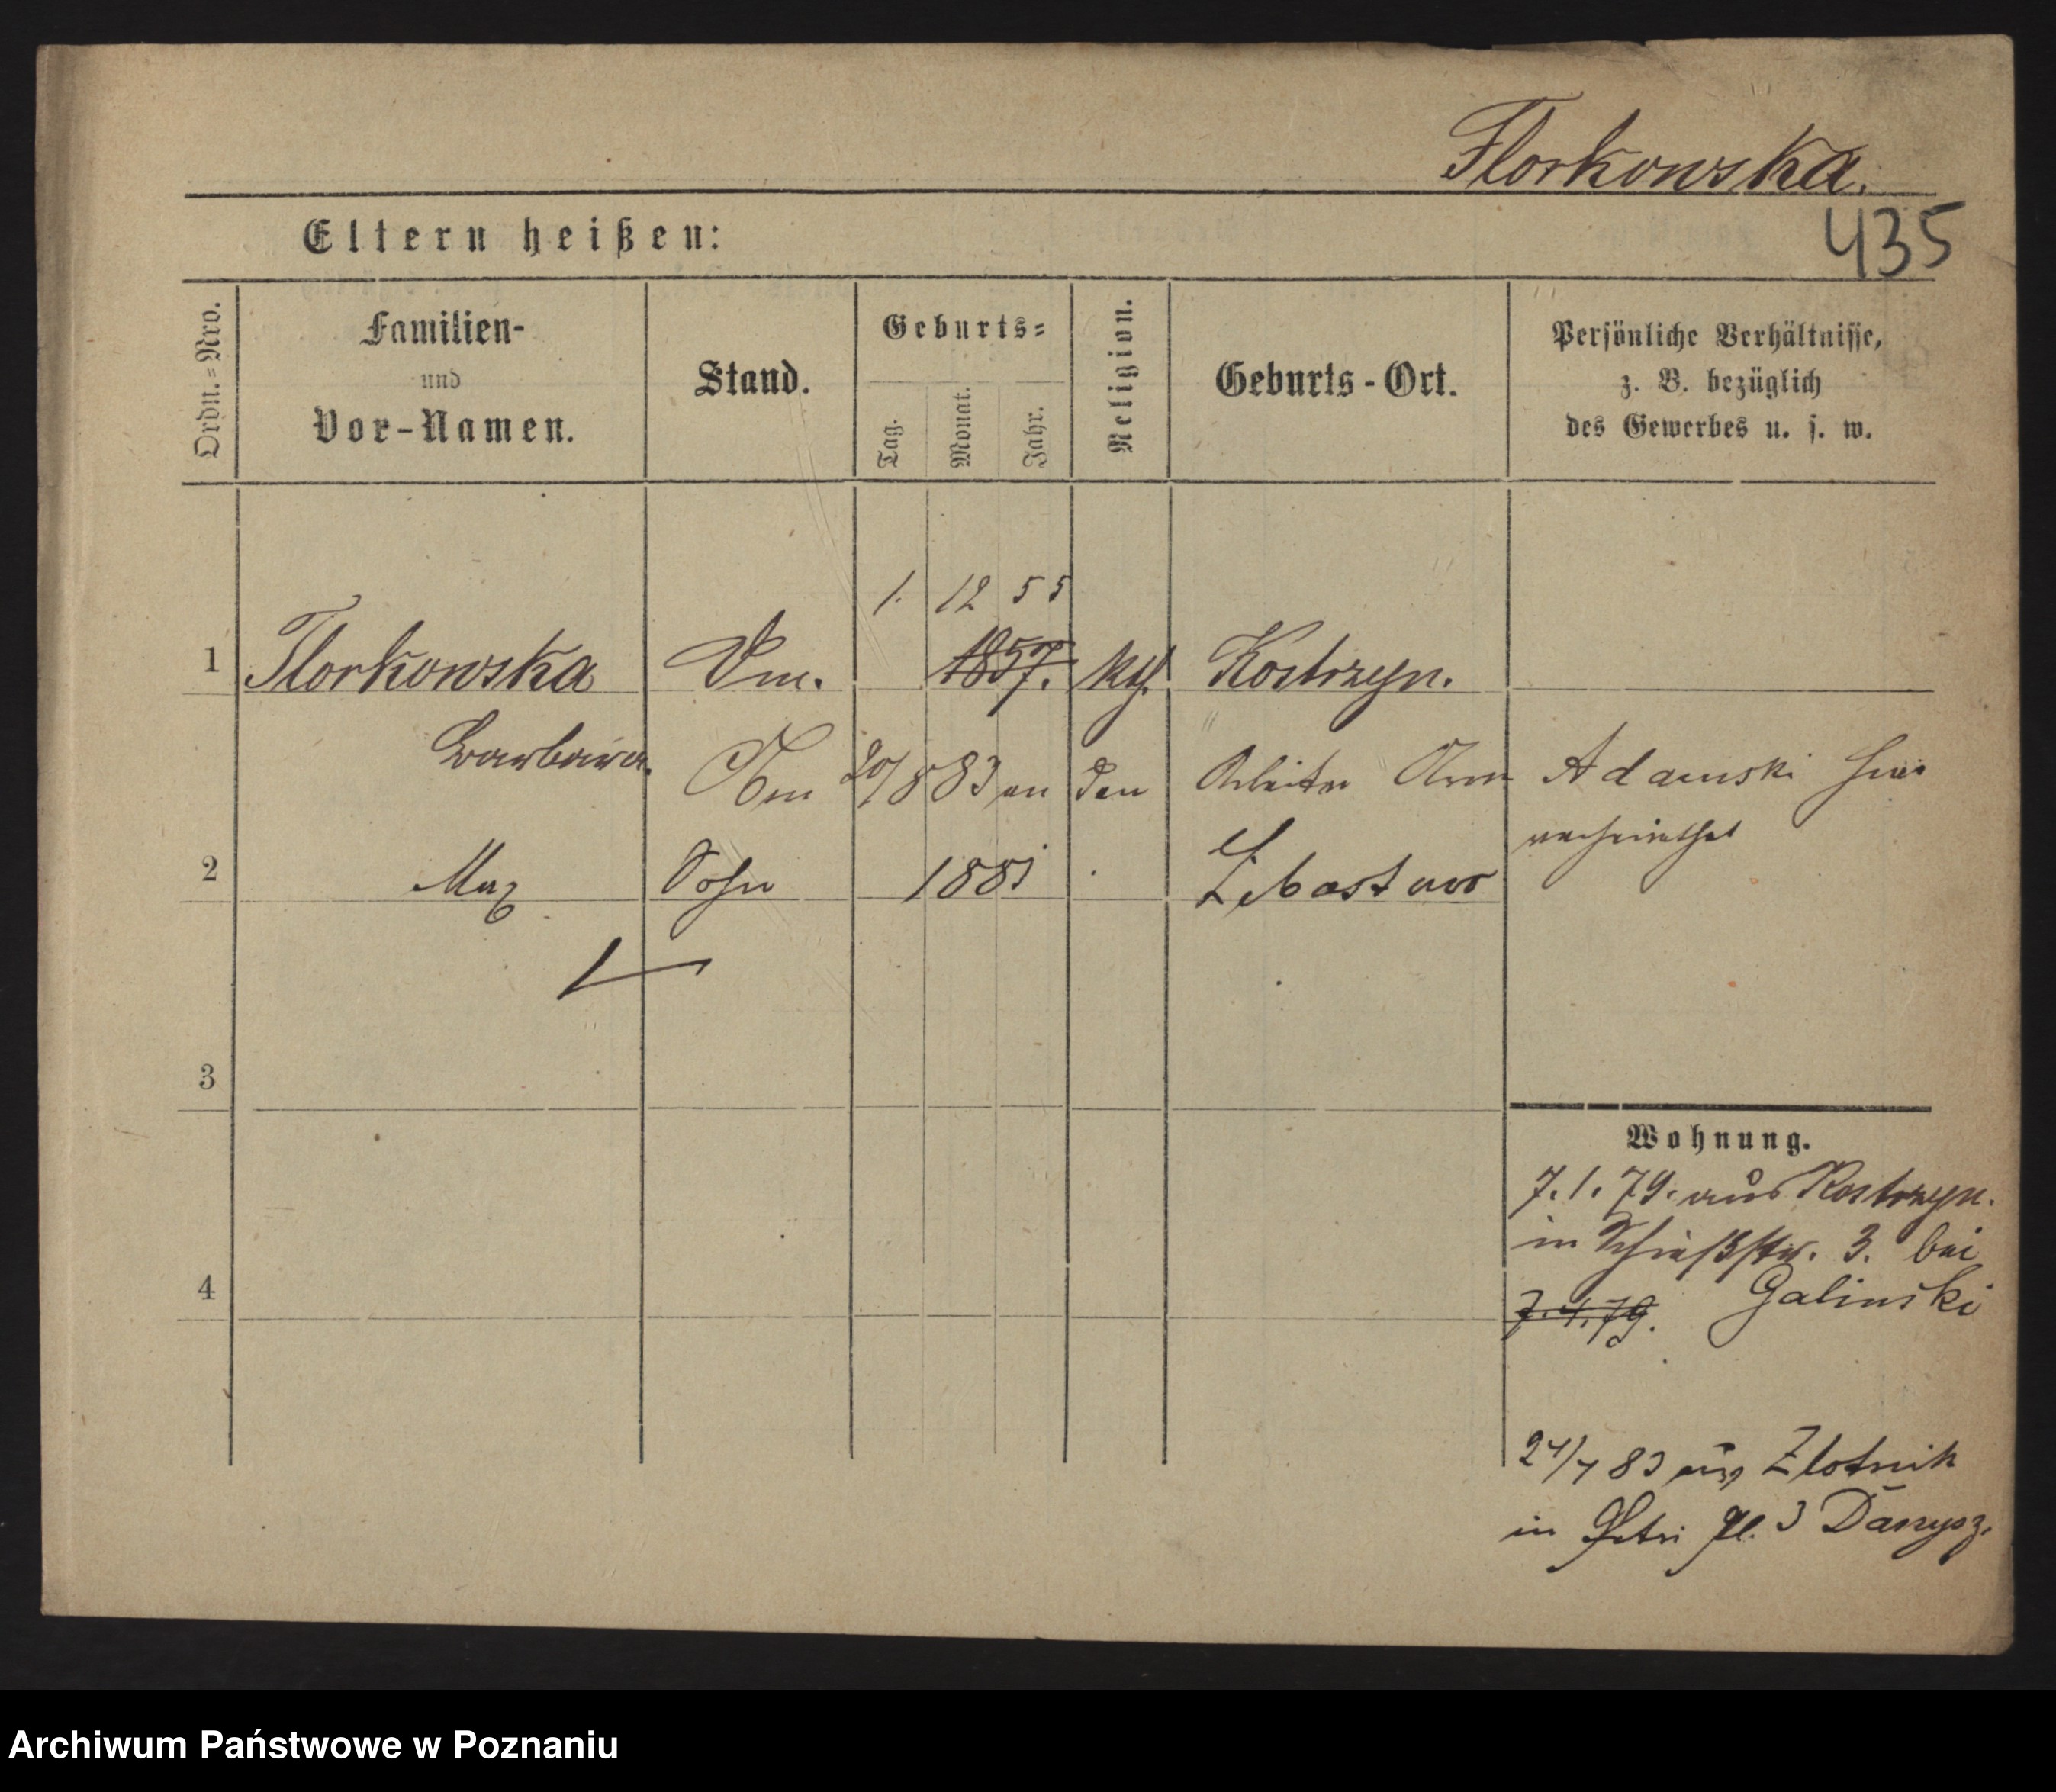 Florkowska.
435
Eltern heißen:
Ordn.=Nro.
Familien-
und
Vor-Namen.
Stand.
Geburts=
Tag.
Monat.
Jahr.
Religion.
Geburts-Ort.
Persönliche Verhältnisse,
z. B. bezüglich
des Gewerbes u. s. w.
1. 12 55
1 Florkowska 1857. kth. Kostrzyn.
Barbara.
Am 20/8 83 an den Arbeiter Adamski hier
verheirathet
2 Max Sohn 1881
3
4
Wohnung.
7. 1. 79. aus Kostrzyn.
in Schießstr. 3. bei
7.4.79. Galinski
24/7 83 aus Zlotnik
in Petri Pl. 3 Danysz.
Archiwum Państwowe w Poznaniu